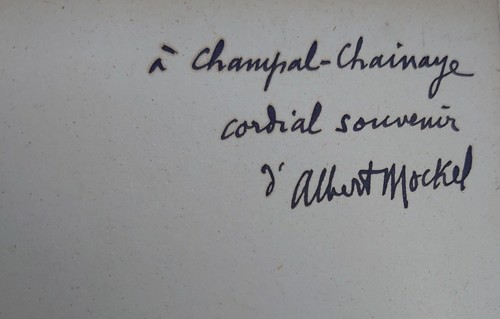 à Champal-Chainaye
cordial souvenir
d'Albert Mockel